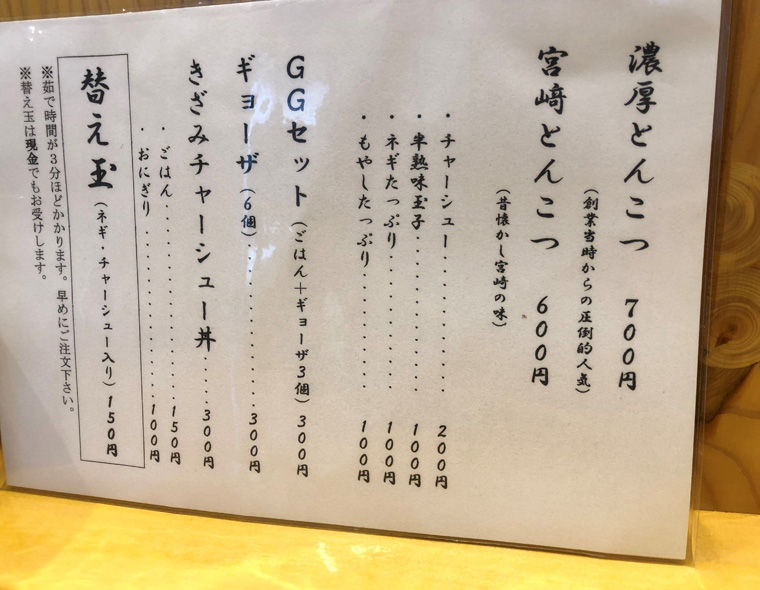 濃厚とんこつ 700円
(創業当時からの圧倒的人気)
宮﨑とんこつ 600円
(昔懐かし宮崎の味)
・チャーシュー・・・・・・・・・・・・200円
・半熟味玉子・・・・・・・・・・・・100円
・ネギたっぷり・・・・・・・・・・・100円
・もやしたっぷり・・・・・・・・・・100円
GGセット(ごはん+ギョーザ3個)300円
ギョーザ(6個)・・・・・・・・・・・300円
きざみチャーシュー丼・・・・300円
・ごはん・・・・・・・・・・・・・・・150円
・おにぎり・・・・・・・・・・・・・・100円
替え玉(ネギ・チャーシュー入り)150円
※茹で時間が3分ほどかかります。早めにご注文下さい。
※替え玉は現金でもお受けします。